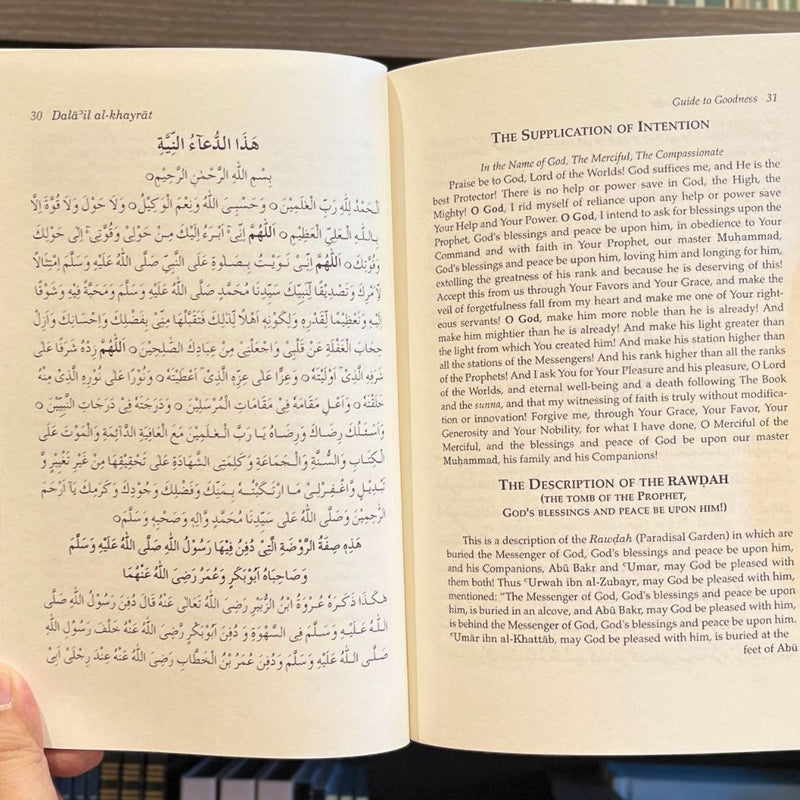 30 Dalāʾil al-khayrāt
هٰذَا الدُّعَآءُ النِّيَّةِ
بِسْمِ اللهِ الرَّحْمٰنِ الرَّحِيْمِ○
اَلْحَمْدُ لِلّٰهِ رَبِّ الْعٰلَمِيْنَ○ وَحَسْبِيَ اللهُ وَنِعْمَ الْوَكِيْلُ○ وَلَا حَوْلَ وَلَا قُوَّةَ اِلَّا
بِاللهِ الْعَلِيِّ الْعَظِيْمِ○ اَللّٰهُمَّ اِنِّيْٓ اَبْرَءُ اِلَيْكَ مِنْ حَوْلِيْ وَقُوَّتِيْٓ اِلٰى حَوْلِكَ
وَقُوَّتِكَ○ اَللّٰهُمَّ اِنِّيْ نَوَيْتُ بِصَلٰوةِ عَلَى النَّبِيِّ صَلَّى اللهُ عَلَيْهِ وَسَلَّمَ اِمْتِثَالًا
لِاَمْرِكَ وَتَصْدِيْقًا لِنَبِيِّكَ سَيِّدِنَا مُحَمَّدٍ صَلَّى اللهُ عَلَيْهِ وَسَلَّمَ وَمَحَبَّةً فِيْهِ وَشَوْقًا
اِلَيْهِ وَتَعْظِيْمًا لِقَدْرِهِ وَلِكَوْنِهِ اَهْلًا لِذٰلِكَ فَتَقَبَّلْهَا مِنِّيْ بِفَضْلِكَ وَاِحْسَانِكَ وَاَزِلْ
حِجَابَ الْغَفْلَةِ عَنْ قَلْبِيْ وَاجْعَلْنِيْ مِنْ عِبَادِكَ الصّٰلِحِيْنَ○ اَللّٰهُمَّ زِدْهُ شَرَفًا عَلٰى
شَرَفِهِ الَّذِيْٓ اَوْلَيْتَهُ○ وَعِزًّا عَلٰى عِزِّهِ الَّذِيْٓ اَعْطَيْتَهُ○ وَنُوْرًا عَلٰى نُوْرِهِ الَّذِيْ مِنْهُ
خَلَقْتَهُ○ وَاَعْلِ مَقَامَهُ فِيْ مَقَامَاتِ الْمُرْسَلِيْنَ○ وَدَرَجَتَهُ فِيْ دَرَجَاتِ النَّبِيِّيْنَ○
وَاَسْئَلُكَ رِضَاكَ وَرِضَاهُ يَا رَبَّ الْعٰلَمِيْنَ مَعَ الْعَافِيَةِ الدَّآئِمَةِ وَالْمَوْتِ عَلَى
الْكِتَابِ وَالسُّنَّةِ وَالْجَمَاعَةِ وَكَلِمَتَيِ الشَّهَادَةِ عَلٰى تَحْقِيْقِهَا مِنْ غَيْرِ تَغْيِيْرٍ وَّ
تَبْدِيْلٍ وَّاغْفِرْلِيْ مَا ارْتَكَبْتُهُ بِمَنِّكَ وَفَضْلِكَ وَجُوْدِكَ وَكَرَمِكَ يَآ اَرْحَمَ
الرّٰحِمِيْنَ وَصَلَّى اللهُ عَلٰى سَيِّدِنَا مُحَمَّدٍ وَّاٰلِهِ وَصَحْبِهِ وَسَلَّمَ○
هٰذِهِ صِفَةُ الرَّوْضَةِ الَّتِيْ دُفِنَ فِيْهَا رَسُوْلُ اللهِ صَلَّى اللهُ عَلَيْهِ وَسَلَّمَ
وَصَاحِبَاهُ اَبُوْبَكْرٍ وَعُمَرُ رَضِيَ اللهُ عَنْهُمَا
هٰكَذَا ذَكَرَهُ عُرْوَةُ ابْنُ الزُّبَيْرِ رَضِيَ اللهُ تَعَالٰى عَنْهُ قَالَ دُفِنَ رَسُوْلُ اللهِ صَلَّى
اللهُ عَلَيْهِ وَسَلَّمَ فِي السَّهْوَةِ وَدُفِنَ اَبُوْبَكْرٍ رَّضِيَ اللهُ عَنْهُ خَلْفَ رَسُوْلِ اللهِ
صَلَّى اللهُ عَلَيْهِ وَسَلَّمَ وَدُفِنَ عُمَرُ بْنُ الْخَطَّابِ رَضِيَ اللهُ عَنْهُ عِنْدَ رِجْلَيْ اَبِيْ
Guide to Goodness 31
THE SUPPLICATION OF INTENTION
In the Name of God, The Merciful, The Compassionate
Praise be to God, Lord of the Worlds! God suffices me, and He is the
best Protector! There is no help or power save in God, the High, the
Mighty! O God, I rid myself of reliance upon any help or power save
Your Help and Your Power. O God, I intend to ask for blessings upon the
Prophet, God's blessings and peace be upon him, in obedience to Your
Command and with faith in Your Prophet, our master Muḥammad,
God's blessings and peace be upon him, loving him and longing for him,
extolling the greatness of his rank and because he is deserving of this!
Accept this from us through Your Favors and Your Grace, and make the
veil of forgetfulness fall from my heart and make me one of Your right-
eous servants! O God, make him more noble than he is already! And
make him mightier than he is already! And make his light greater than
the light from which You created him! And make his station higher than
all the stations of the Messengers! And his rank higher than all the ranks
of the Prophets! And I ask You for Your Pleasure and his pleasure, O Lord
of the Worlds, and eternal well-being and a death following The Book
and the sunna, and that my witnessing of faith is truly without modifica-
tion or innovation! Forgive me, through Your Grace, Your Favor, Your
Generosity and Your Nobility, for what I have done, O Merciful of the
Merciful, and the blessings and peace of God be upon our master
Muḥammad, his family and his Companions!
THE DESCRIPTION OF THE RAWḌAH
(THE TOMB OF THE PROPHET,
GOD'S BLESSINGS AND PEACE BE UPON HIM!)
This is a description of the Rawḍah (Paradisal Garden) in which are
buried the Messenger of God, God's blessings and peace be upon him,
and his Companions, Abū Bakr and ʿUmar, may God be pleased with
them both! Thus ʿUrwah ibn al-Zubayr, may God be pleased with him,
mentioned: "The Messenger of God, God's blessings and peace be upon
him, is buried in an alcove, and Abū Bakr, may God be pleased with him,
is behind the Messenger of God, God's blessings and peace be upon him.
ʿUmār ibn al-Khattāb, may God be pleased with him, is buried at the
feet of Abū